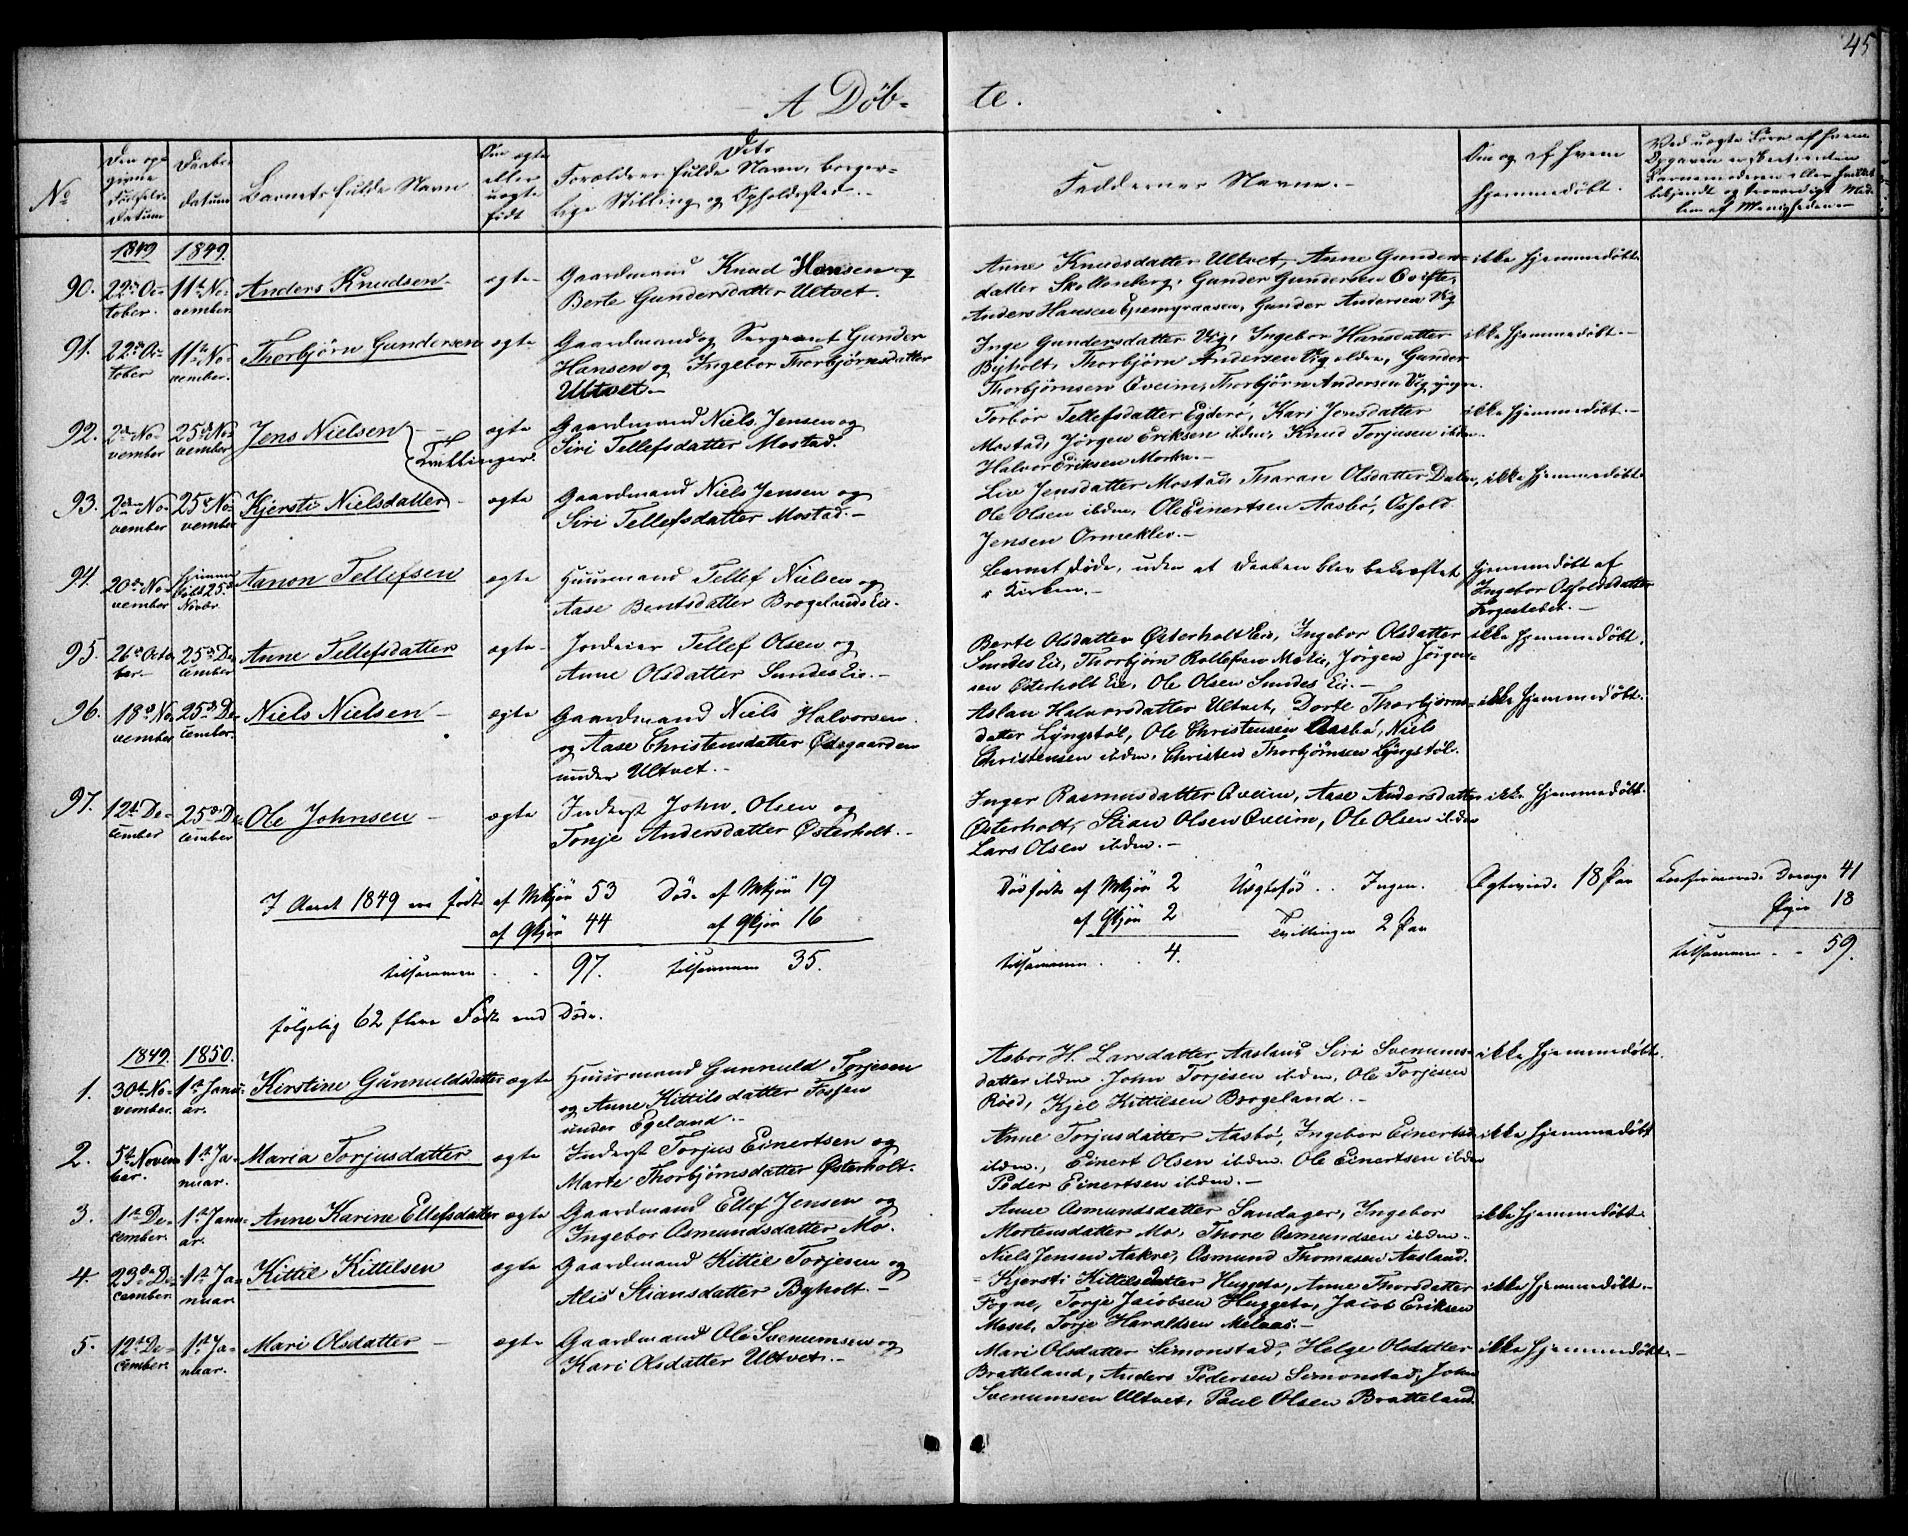 45
A Döb- te.
No
Den op-
givne
Födsels-
datum
Daabs-
datum
Barnets fulde Navn
Om ægte
eller
uægte
födt
Dets
Forældres fulde Navn, borger-
lige Stilling og Opholdssted.-
Faddernes Navne.-
Om og af hvem
hjemmedöbt.
1849 1849.
90. 22de Oc-
tober. 11te No-
vember. Anders Knudsen. ægte- Gaardmand Knud Hansen og
Berte Gundersdatter Ultvet.
Anne Knudsdatter Ultvet, Anne Gunders-
datter Skollenberg, Gunder Gundersen
Anders Hansen Gunder Andersen Vig
ikke hjemmedöbt.
91. 22de Oc-
tober 11te No-
vember. Thorbjörn Gundersen ægte Gaardmand og Sergeant Gunder
Hansen og Ingebor Thorbjörnsdatter
Ultvet.-
Inge Gundersdatter Vig, Ingebor Hansdatter
Byholt, Thorbjörn Andersen Vig ældre, Gunder
Thorbjörnsen Oveim, Thorbjörn Andersen Vig yngre.
ikke hjemmedöbt.-
92. 2den No-
vember 25de No-
vember Jens Nielsen Tvillinger. ægte Gaardmand Niels Jensen og
Siri Tellefsdatter Mostad.
Torbör Tellefsdatter Egderö, Kari Jensdatter
Mostad, Jörgen Eriksen ibdm, Knud Torjusen ibdm.
Halvor Eriksen Morkv.-
ikke hjemmedöbt.-
93. 2den No-
vember 25de No-
vember Kjersti Nielsdatter ægte Gaardmand Niels Jensen og
Siri Tellefsdatter Mostad.-
Liv Jensdatter Mostad, Tharan Olsdatter Dalen,
Ole Olsen ibdm, Ole Einertsen Aasbö, Osfold
Jensen Ormeklev.-
ikke hjemmedöbt.
94. 20de No-
vember hjemme-
döbt 25de
Novbr. Aanon Tellefsen ægte Huusmand Tellef Nielsen og
Aase Bentsdatter Brogelands Eie.
Barnet döde, uden at Daaben blev bekræftet
i Kirken.-
hjemmedöbt af
Ingebor Osfoldsdatter
95. 26de Octo-
ber.- 25de De-
cember Anne Tellefsdatter ægte- Jordeier Tellef Olsen og
Anne Olsdatter Sundes Eie.-
Berte Olsdatter Österholt Eie, Ingebor Olsdatter
Sundes Eie, Thorbjörn Rollefsen Jörgen Jörgen-
sen Österholt Eie, Ole Olsen Sundes Eie.-
ikke hjemmedöbt.
96. 18de No-
vember 25de De-
cember. Niels Nielsen- ægte Gaardmand Niels Halvorsen
og Aase Christensdatter Ödegaarden
under Ultvet.-
Aslau Halvorsdatter Ultvet, Dorte Thorbjörns-
datter Lyngstöl, Ole Christensen Aasbö, Niels
Christensen ibdm, Christen Thorbjörnsen Lyngstöl.
ikke hjemmedöbt.
97. 12te De-
cember 25de De-
cember Ole Johnsen- ægte Inderst John Olsen og
Tonje Andersdatter Österholt.-
Inger Rasmusdatter Oveim, Aase Andersdatter
Österholt, Stian Olsen Oveim, Ole Olsen ibdm
Lars Olsen ibdm.-
ikke hjemmedöbt.
I Aaret 1849 ere födte af Mkjön 53 Döde af Mkjön 19
af Qkjön 44 af Qkjön 16
tilsammen . . 97. tilsammen 35.
Dödfödte af Mkjön 2 Uægtefød . . Ingen. Ægteviede 18 Par
af Qkjön 2 Tvillinger 2 Par
tilsammen . . 4.
Confirmerede Drenge 41
Piger 18
tilsammen . . 59.
fölgelig 62 flere Födte end Döde.
1849. 1850.
1. 30te No-
vember. 1te Janu-
ar. Kirstine Gunnuldsdatter ægte Huusmand Gunnuld Torjesen
og Anne Kittilsdatter Fossen
under Egeland.-
Asbor H. Larsdatter Aasland, Siri Svenums-
datter ibdm. John Torjesen ibdm, Ole Torjesen
Röed, Kjel Kittilsen Brogeland.-
ikke hjemmedöbt.
2. 5te Novem-
ber. 1te Ja-
nuar. Maria Torjusdatter ægte Inderst Torjus Einertsen og
Marte Thorbjörnsdatter Österholt.
Anne Torjusdatter Aasbö, Ingebor Einertsd.
ibdm., Einert Olsen ibdm. Ole Einertsen ibdm
Peder Einertsen ibdm.-
ikke hjemmedöbt
3. 1te De-
cember. 1te Janu-
ar. Anne Karine Ellefsdatter ægte Gaardmand Ellef Jensen og
Ingebor Osmundsdatter Mo.
Anne Osmundsdatter Sandager, Ingebor
Mortensdatter Mo, Thore Osmundsen ibdm.
Niels Jensen Aakre, Osmund Thomasen Aasland.
ikke hjemmedöbt.
4 23de De-
cember. 1te Ja-
nuar. Kittil Kittilsen ægte Gaardmand Kittil Torjesen og
Alis Stiansdatter Byholt.-
Kjersti Kittilsdatter Huggeto, Anne Thorsdatter
Fogne, Torje Jacobsen Huggeto, Jacob Eriksen
Mosel, Torje Haraldsen Melaas.-
ikke hjemmedöbt.-
5. 12te De-
cember. 1te Ja-
nuar. Mari Olsdatter- ægte Gaardmand Ole Svenumsen og
Kari Olsdatter Ultvet.-
Mari Olsdatter Simonstad, Helge Olsdatter
Bratteland, Anders Pedersen Simonstad, John
Svenumsen Ultvet, Paul Olsen Bratteland.
ikke hjemmedöbt.-